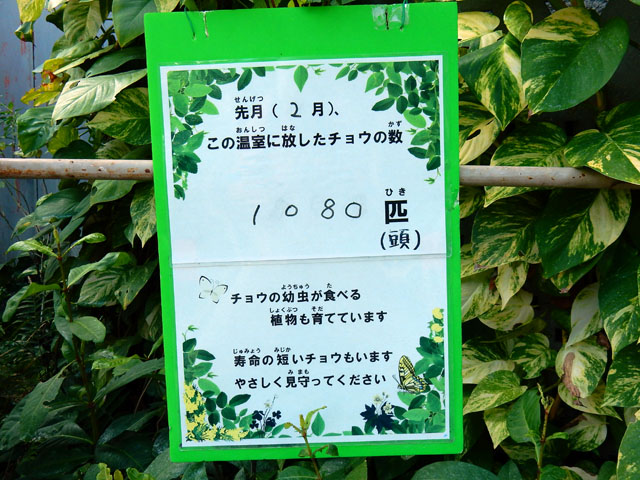 先月(2月)、
この温室に放したチョウの数
1080 匹
(頭)
チョウの幼虫が食べる
植物も育てています
寿命の短いチョウもいます
やさしく見守ってください